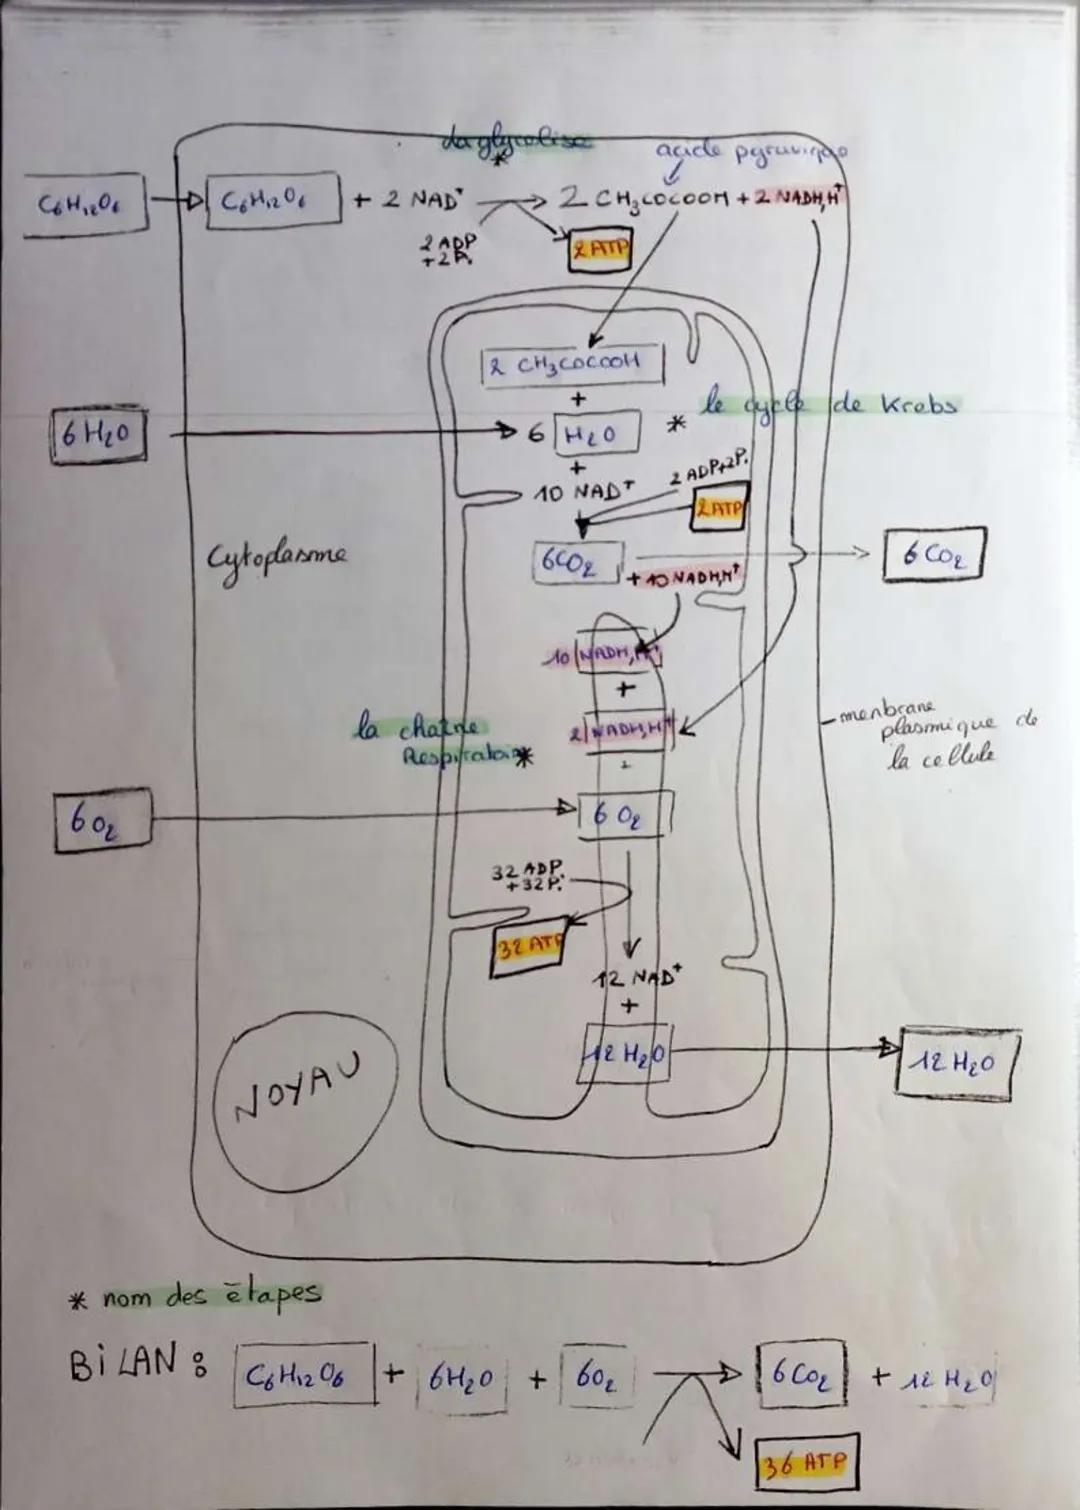 La glycolise
*
acide pyruvique
C6H12O6
C6H12O6 + 2 NAD+ → 2 CH3COCOOH + 2 NADH,H+
2 ADP
+ 2 P.
2 ATP
2 CH3COCOOH
+
le cycle de Krebs
*
6 H2O
6 H2O
+
2 ADP+2P.
10 NAD+
2 ATP
Cytoplasme
6CO2
6 CO2
+ 10 NADH,H+
10 NADH,H+
+
2 NADH,H+
la chaîne
Respiratoire *
+
menbrane
plasmique de
la cellule
6 O2
6 O2
32 ADP.
+32P.
32 ATP
12 NAD+
+
12 H2O
12 H2O
NOYAU
* nom des étapes
BiLAN : C6H12O6 + 6H2O + 6O2 → 6CO2 + 12 H2O
36 ATP